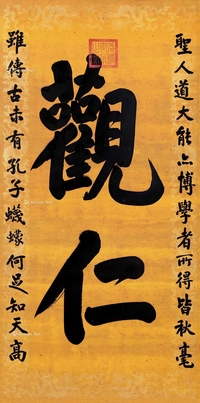 聖人道大能亦博學者所得皆秋毫
觀仁
雖傳古未有孔子蠛蠓何足知天高